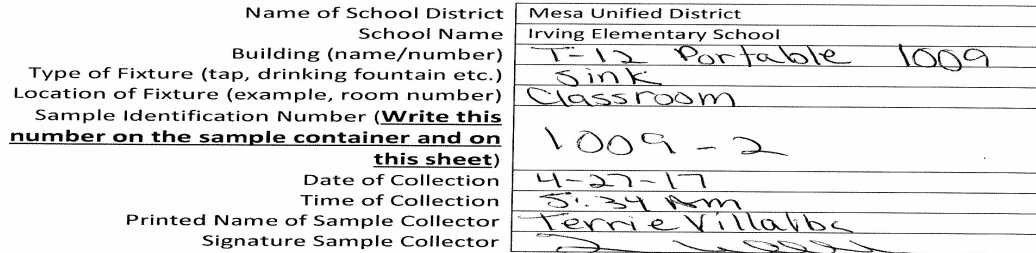 Name of School District Mesa Unified District
School Name Irving Elementary School
Building (name/number) T-12 Portable 1009
Type of Fixture (tap, drinking fountain etc.) Sink
Location of Fixture (example, room number) Classroom
Sample Identification Number (Write this
number on the sample container and on
this sheet) 1009-2
Date of Collection 4-27-17
Time of Collection 5:34 Am
Printed Name of Sample Collector Terrie Villalba
Signature Sample Collector